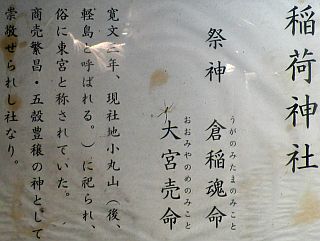 稲荷神社
祭神 倉稲魂命
うがのみたまのみこと
大宮売命
おおみやのめのみこと
寛文二年、現社地小丸山（後、
軽島と呼ばれる。）に祀られ、
俗に東宮と称されていた。
商売繁昌・五穀豊穣の神として
崇敬せられし社なり。